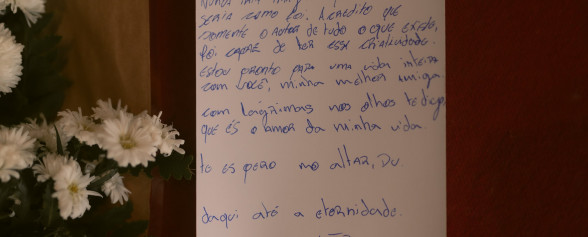 seria como foi. Acredito que
somente o autor de tudo o que existe,
foi capaz de ter essa criatividade.
Estou pronto para uma vida inteira
com você, minha melhor amiga
com lágrimas nos olhos te digo,
que és o amor da minha vida.
te espero no altar, Du.
daqui até a eternidade.